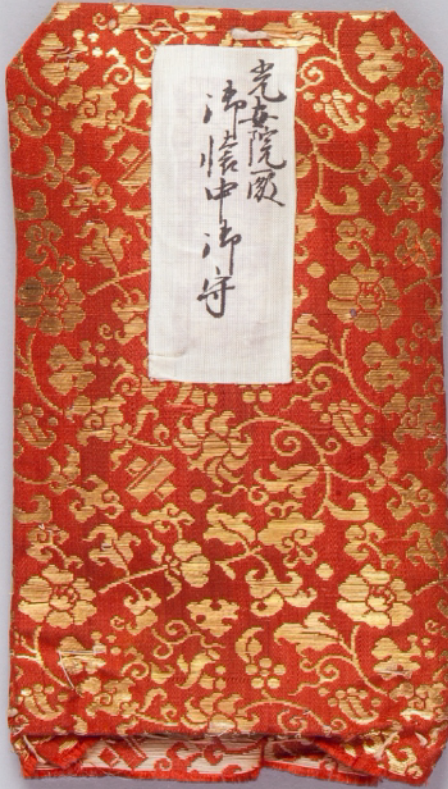 光安院殿
御懐中御守